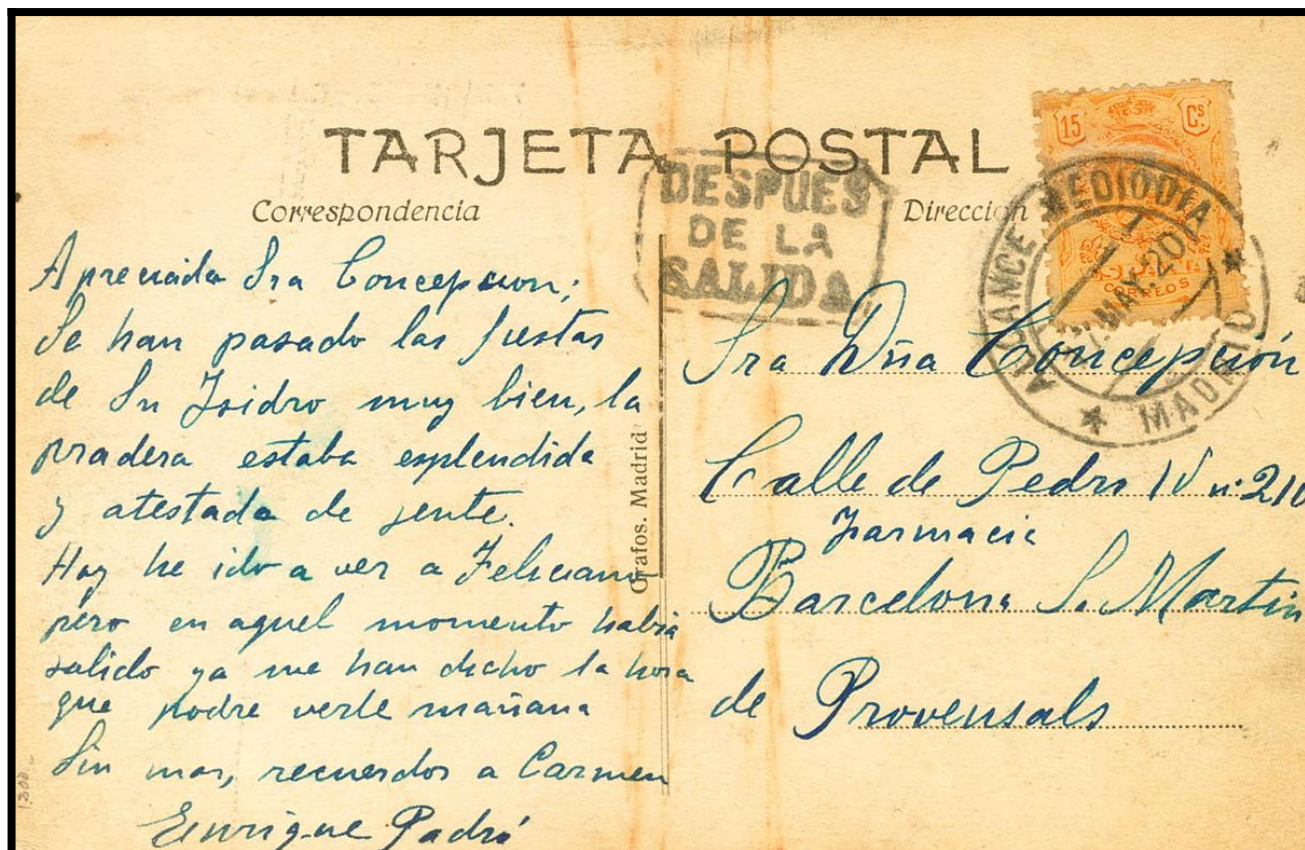 TARJETA POSTAL
Correspondencia
Dirección
15 Cs.
CORREOS
ALCANCE MEDIODIA
MAY.20
* MADRID *
DESPUES
DE LA
SALIDA
Apreciada Sra Concepcion;
Se han pasado las fiestas
de Sn Isidro muy bien, la
pradera estaba esplendida
y atestada de jente.
Hoy he ido a ver a Feliciano
pero en aquel momento habia
salido ya me han dicho la hora
que podre verle mañana
Sin mas, recuerdos a Carmen
Enrique Padró
Grafos. Madrid
Sra Dña Concepción
Calle de Pedro IV nº 210
Farmacia
Barcelona S. Martin
de Provensals